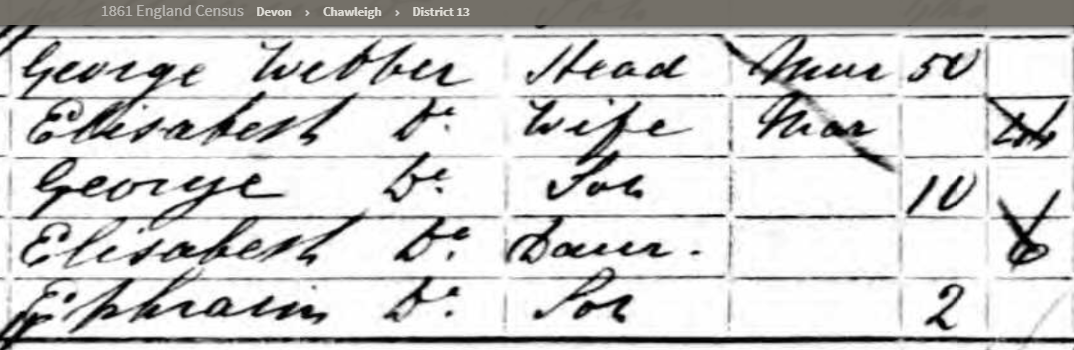 1861 England Census Devon › Chawleigh › District 13
George Webber Head Mar 50
Elisabeth Do. Wife Mar
George Do. Son 10
Elisabeth Do. Daur. 6
Ephraim Do. Son 2